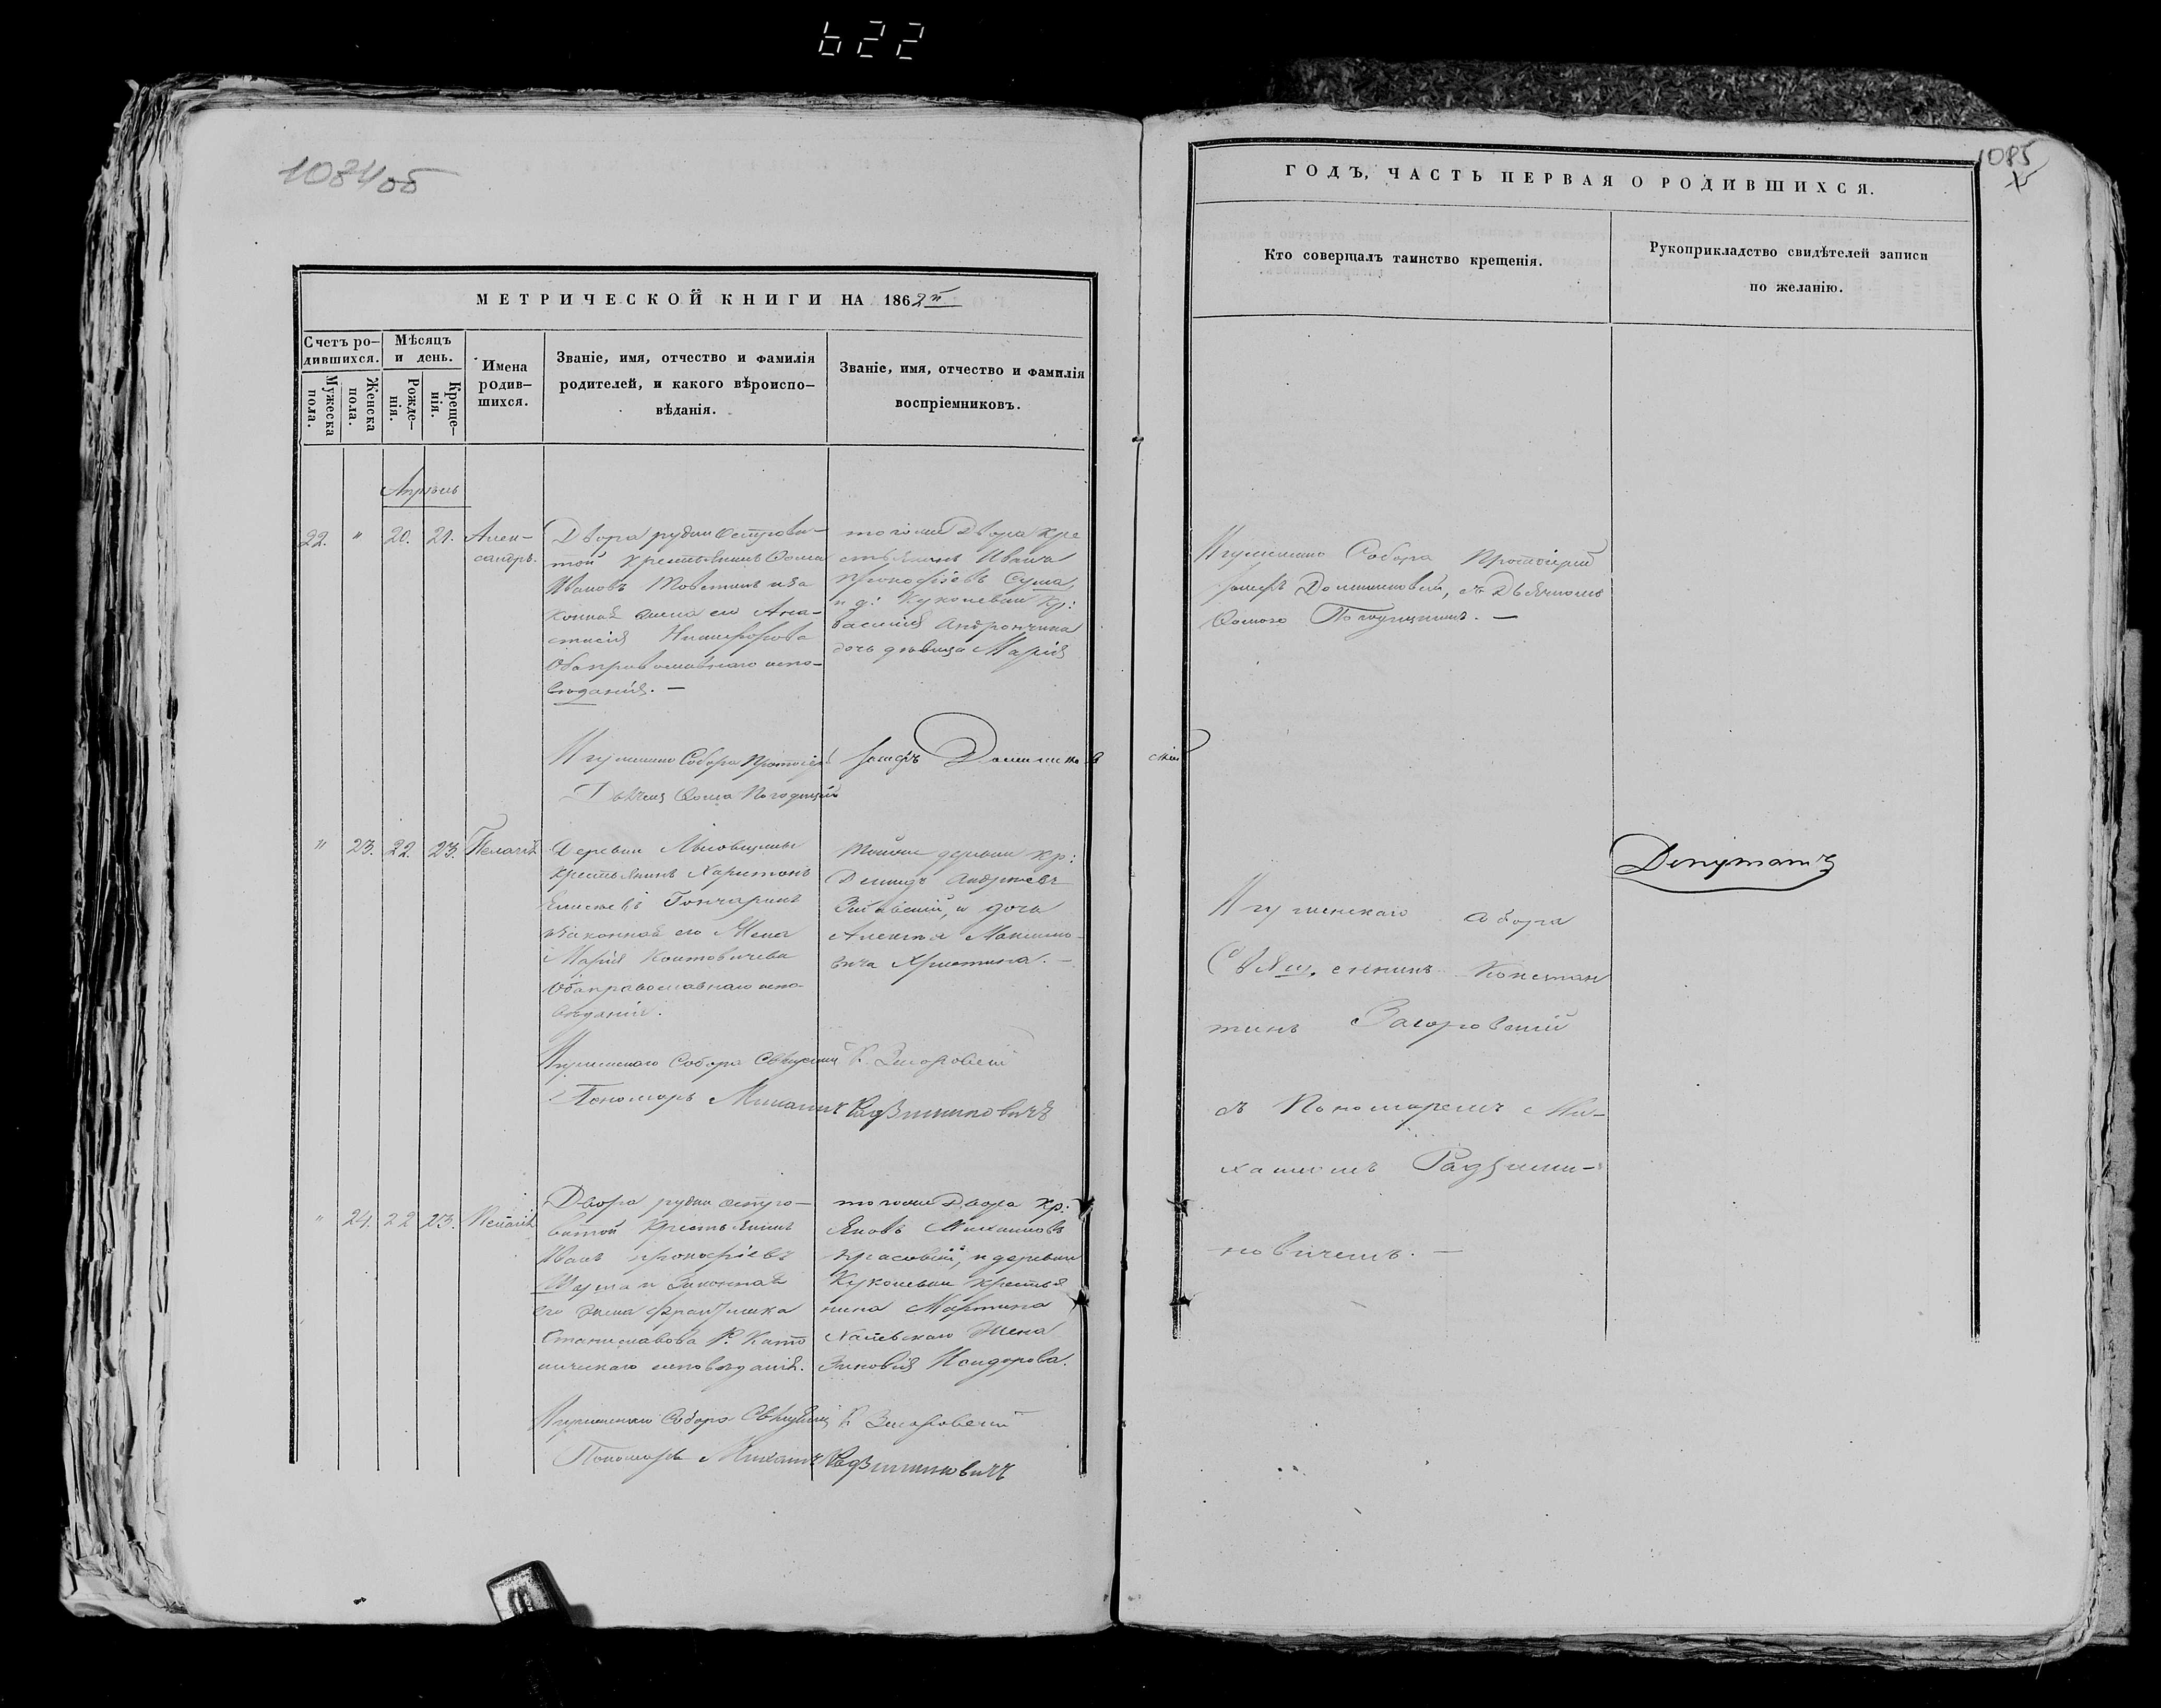 622
1084об
1085
МЕТРИЧЕСКОЙ КНИГИ НА 1862й
Счетъ ро-
дившихся.
Мѣсяцъ
и день.
Мужеска
пола.
Женска
пола.
Рожде-
нія.
Креще-
нія.
Имена
родив-
шихся.
Званіе, имя, отчество и фамилія
родителей, и какого вѣроиспо-
вѣданія.
Званіе, имя, отчество и фамилія
воспріемниковъ.
Апрѣль
22. " 20. 21. Алек-
сандръ.
Двора рудни Острови-
той крестьянинъ Фома
Ивановъ и за
конная жена его Ана-
стасія Никифорова
Оба православнаго испо-
вѣданія. —
тогоже Двора кре
стьянинъ Иванъ
Прокофіевъ Сума,
и д: Куколевки Кр:
Василія Андрончика
дочь дѣвица Марія
Игуменскаго Собора Протоіерей Іосифъ Доминиковскій
Дьячекъ Фома Погодицкій
" 23. 22. 23. Пелагія
Деревни
крестьянинъ Харитонъ
Елисѣевъ Гончарикъ
и законная его жена
Марія
Оба православнаго испо-
вѣданія.
Тойже деревни Кр:
Демидъ Андреевъ
и дочь
Алексѣя Максимо-
вича Христина. —
Игуменскаго Собора Священникъ К. Загоровскій
Пономарь Михаилъ Радзиминовичъ
" 24. 22 23. Пелагія
Двора рудни остро-
витой Крестьянинъ
Иванъ Прокофіевъ
Шума и Законная
его жена Францишка
Станиславова Р. Като
лическаго исповѣданія.
тогоже Двора Кр:
Яковъ Михайловъ
Красовскій, и деревни
Куколевки крестья
нина Мартина
жена
Зиновія Исидорова.
Игуменскаго Собора Священникъ К. Загоровскій
Пономарь Михаилъ Радзиминовичъ
ГОДЪ, ЧАСТЬ ПЕРВАЯ О РОДИВШИХСЯ.
Кто совершалъ таинство крещенія.
Рукоприкладство свидѣтелей записи
по желанію.
Игуменскаго Собора Протоіерей
Іосифъ Доминиковскій, съ Дьячкомъ
Фомою Погодицкимъ. —
Депутатъ
Игуменскаго Собора
Священникъ Констан
тинъ Загоровскій
съ Пономаремъ Ми-
хаиломъ Радзими-
новичемъ. —